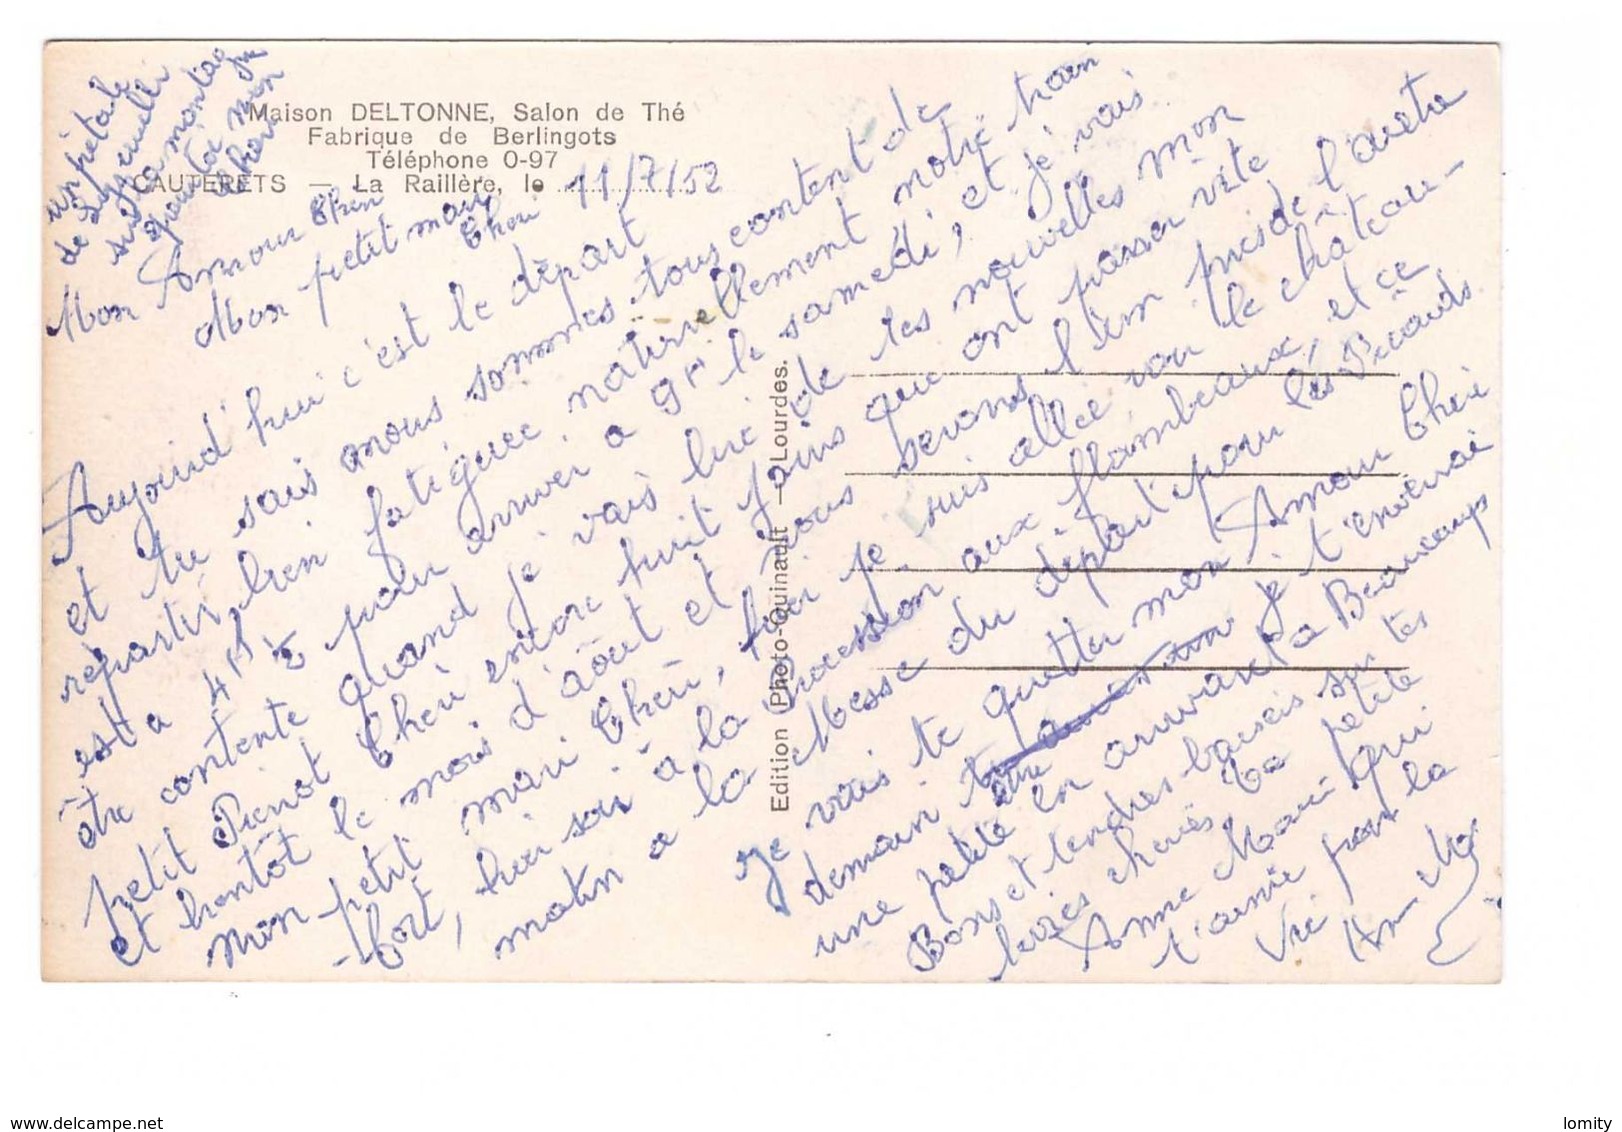 Maison DELTONNE, Salon de Thé
Fabrique de Berlingots
Téléphone 0-97
CAUTERETS — La Raillère, le 11/7/52
Mon Amour Cheri
Mon petit mari Cheri
Aujourd'hui c'est le départ
et tu sais nous sommes tous content de
répartir, bien fatiguée naturellement notre train
est a 4h ½ pour arriver a 9h le samedi, et je vais
être contente quand je vais lire de tes nouvelles mon
petit Pierrot Cheri encore huit jours que ont passer vite
et bientôt le mois d'aôut et nous serons l'un près de l'autre
mon petit mari Cheri, hier je suis allée voir le château-
fort, hier soir à la procession aux flambeaux, et ce
matin a la Messe du départ pour les
Je vais te quetter mon Amour Cheri
demain je t'enverrai
une petite en arrivant a Beaucamps
Bons et tendres baisers sur tes
chéries Ta petite
Anne Marie qui
t'aime pour la
Vie
Edition Photo-Quinault — Lourdes.
www.delcampe.net
lomity